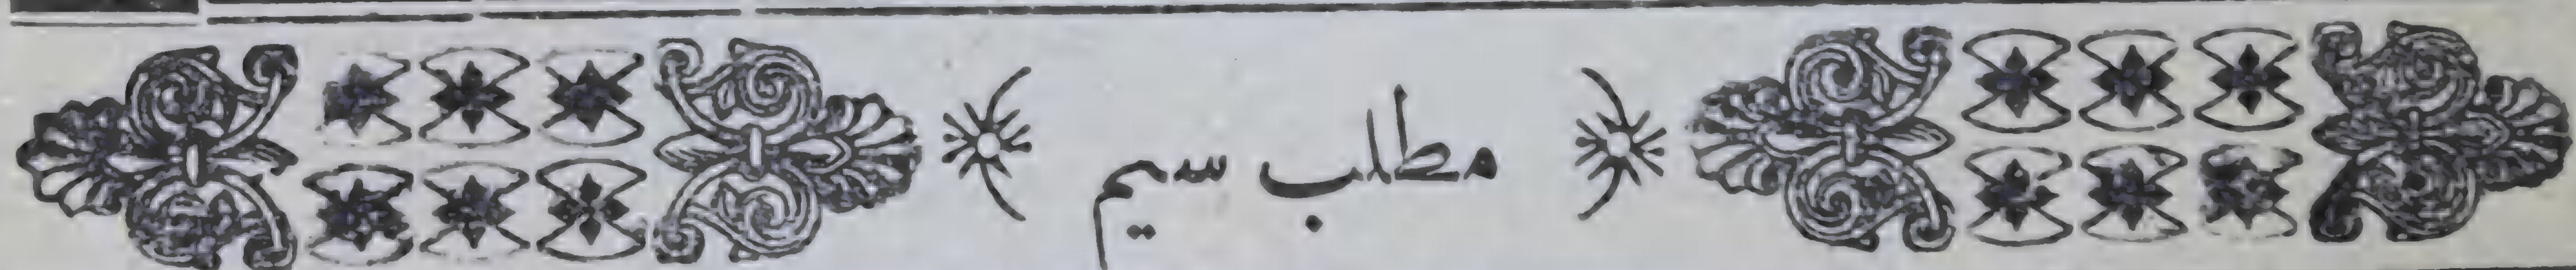 مطلب سیم